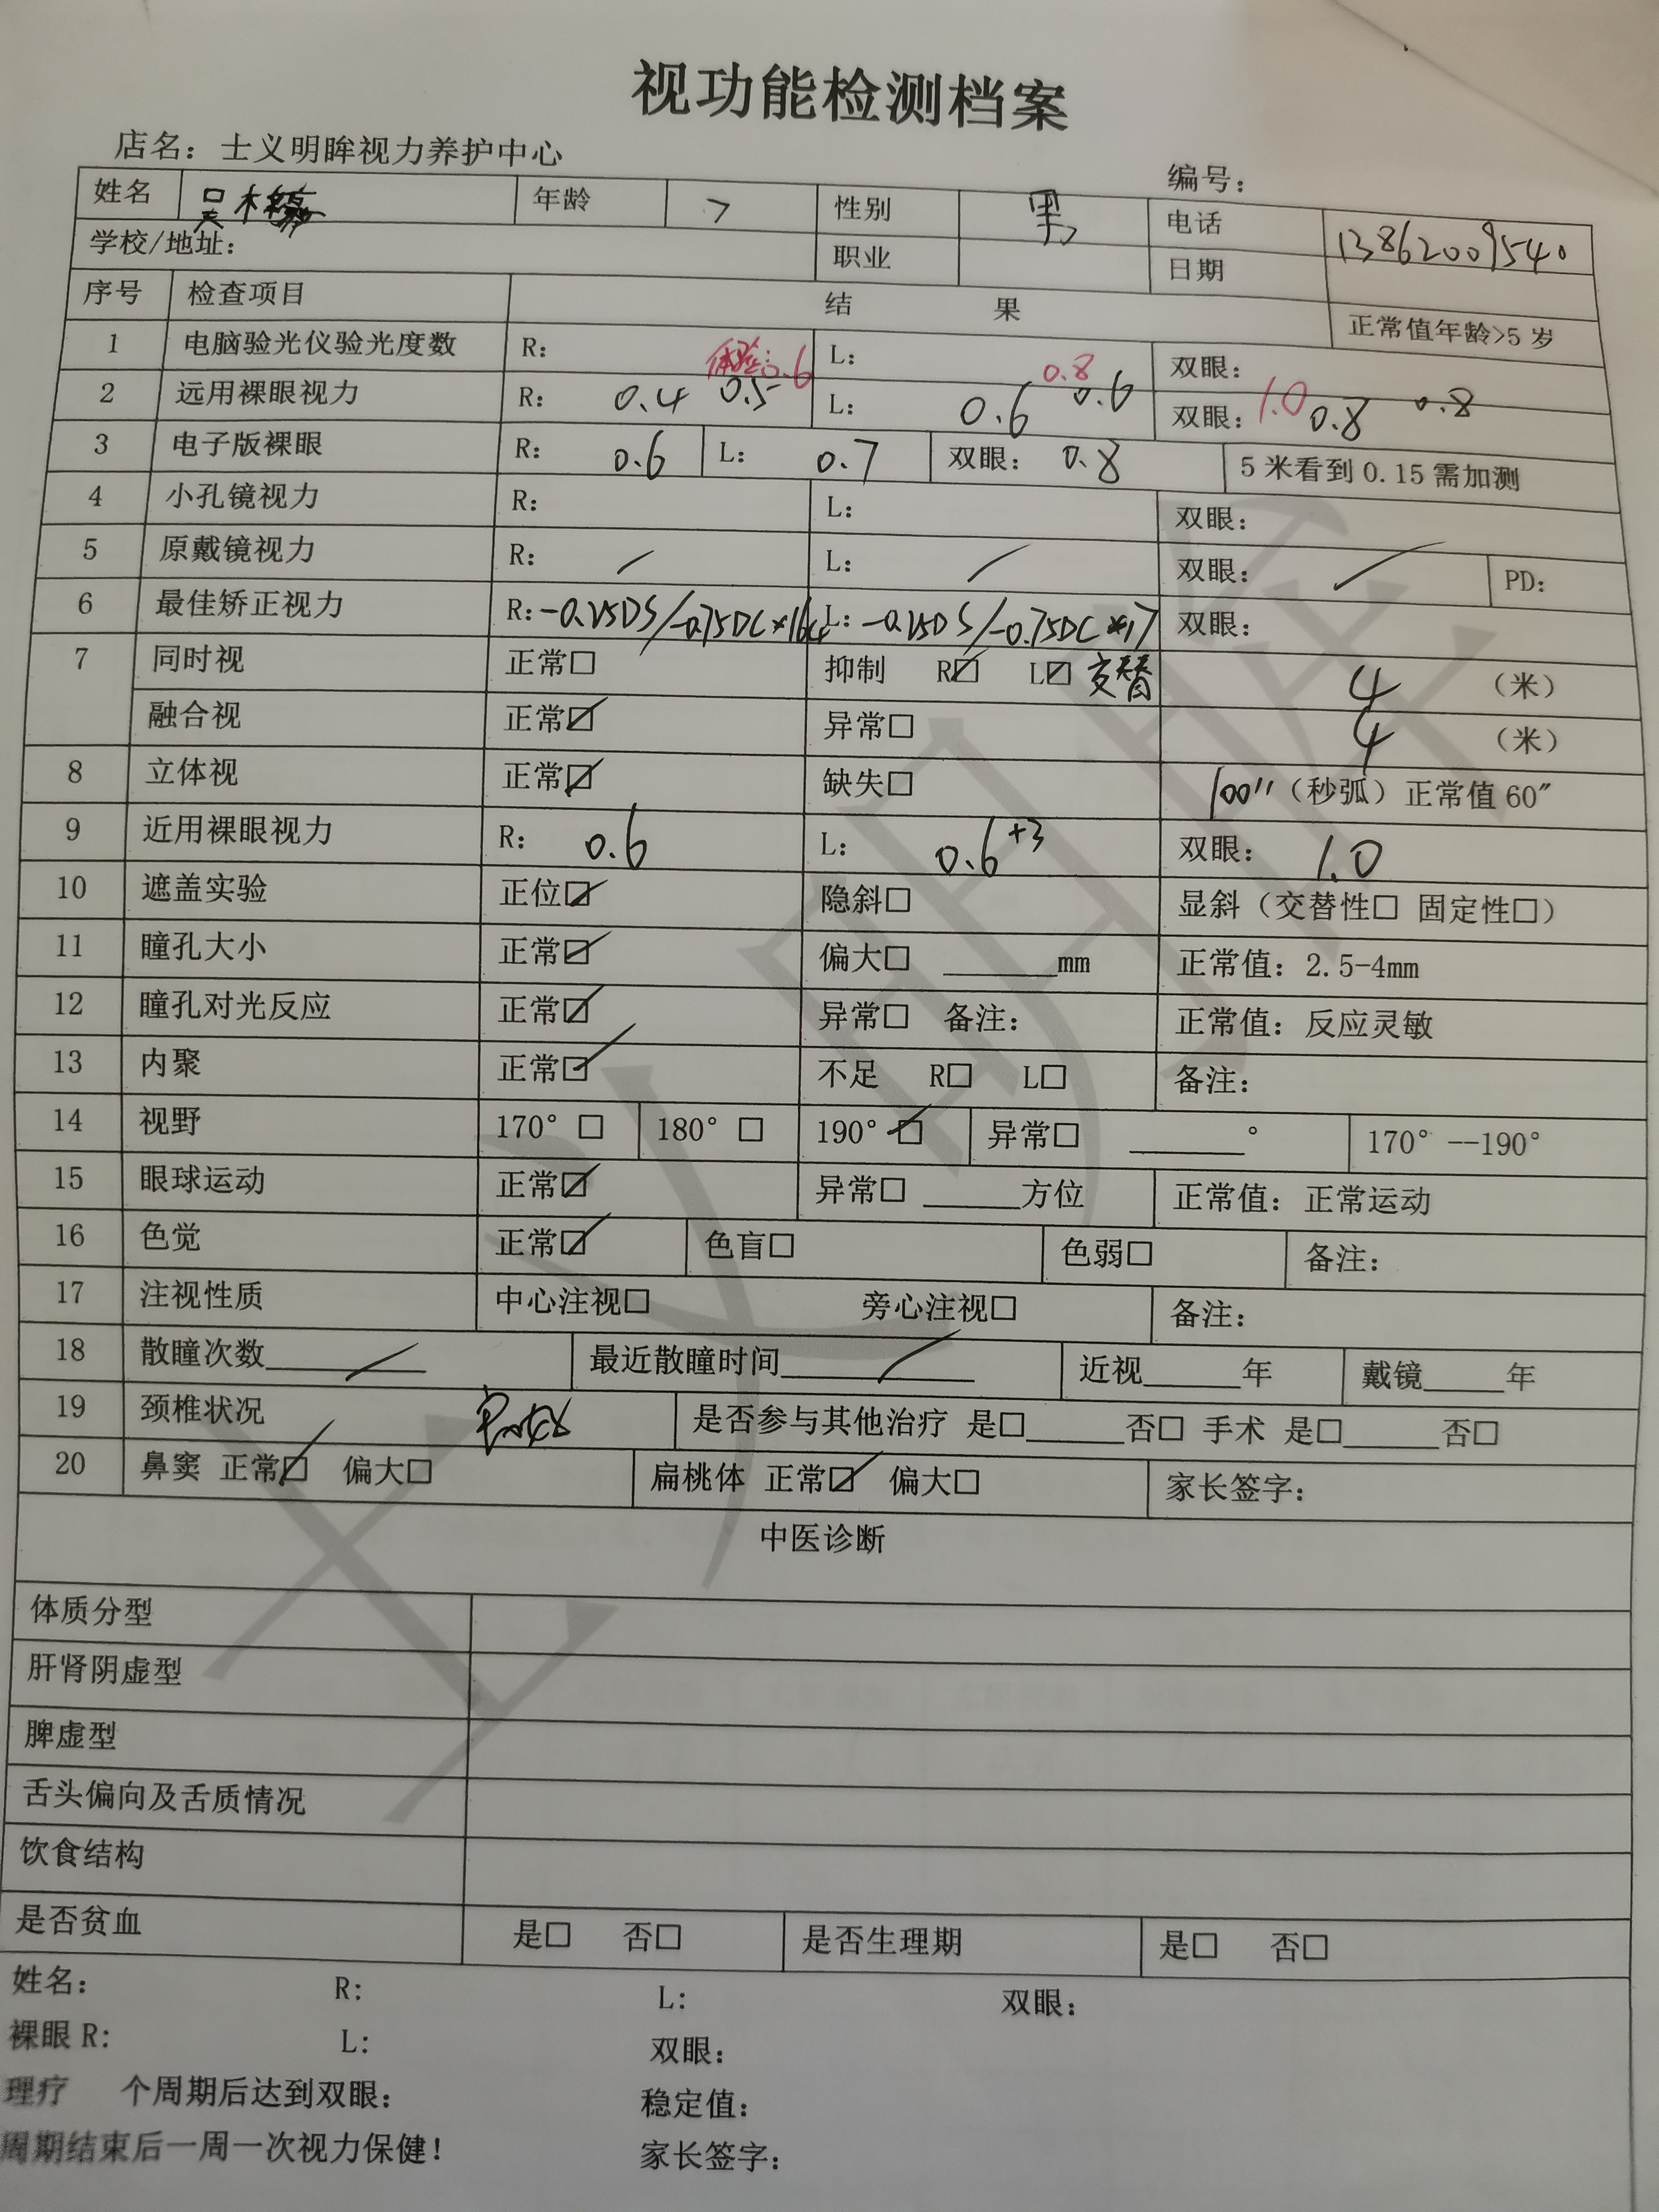 视功能检测档案
店名：士义明眸视力养护中心
编号：
姓名 吴 年龄 7 性别 男 电话 13862009540
学校/地址： 职业 日期
序号 检查项目 结 果 正常值年龄>5岁
1 电脑验光仪验光度数 R： 体验后:0.6 L： 0.8 双眼： 1.0
2 远用裸眼视力 R： 0.4 0.5 L： 0.6 0.6 双眼： 0.8 0.8
3 电子版裸眼 R： 0.6 L： 0.7 双眼： 0.8 5米看到0.15需加测
4 小孔镜视力 R： L： 双眼：
5 原戴镜视力 R： / L： / 双眼： / PD：
6 最佳矫正视力 R：-0.25DS/-0.75DC* L：-0.25DS/-0.75DC*17 双眼：
7 同时视 正常□ 抑制 R☑ L☑ 交替 4 （米）
融合视 正常☑ 异常□ 4 （米）
8 立体视 正常☑ 缺失□ 100″（秒弧）正常值60″
9 近用裸眼视力 R： 0.6 L： 0.6+3 双眼： 1.0
10 遮盖实验 正位☑ 隐斜□ 显斜（交替性□ 固定性□）
11 瞳孔大小 正常☑ 偏大□ ______mm 正常值：2.5-4mm
12 瞳孔对光反应 正常☑ 异常□ 备注： 正常值：反应灵敏
13 内聚 正常☑ 不足 R□ L□ 备注：
14 视野 170° □ 180° □ 190° ☑ 异常□ ______° 170° --190°
15 眼球运动 正常☑ 异常□ ______方位 正常值：正常运动
16 色觉 正常☑ 色盲□ 色弱□ 备注：
17 注视性质 中心注视□ 旁心注视□ 备注：
18 散瞳次数 / 最近散瞳时间 / 近视______年 戴镜_____年
19 颈椎状况 是否参与其他治疗 是□______否□ 手术 是□______否□
20 鼻窦 正常☑ 偏大□ 扁桃体 正常☑ 偏大□ 家长签字：
中医诊断
体质分型
肝肾阴虚型
脾虚型
舌头偏向及舌质情况
饮食结构
是否贫血 是□ 否□ 是否生理期 是□ 否□
姓名： R： L： 双眼：
裸眼R: L: 双眼：
理疗 个周期后达到双眼： 稳定值：
周期结束后一周一次视力保健！ 家长签字：
士义明眸